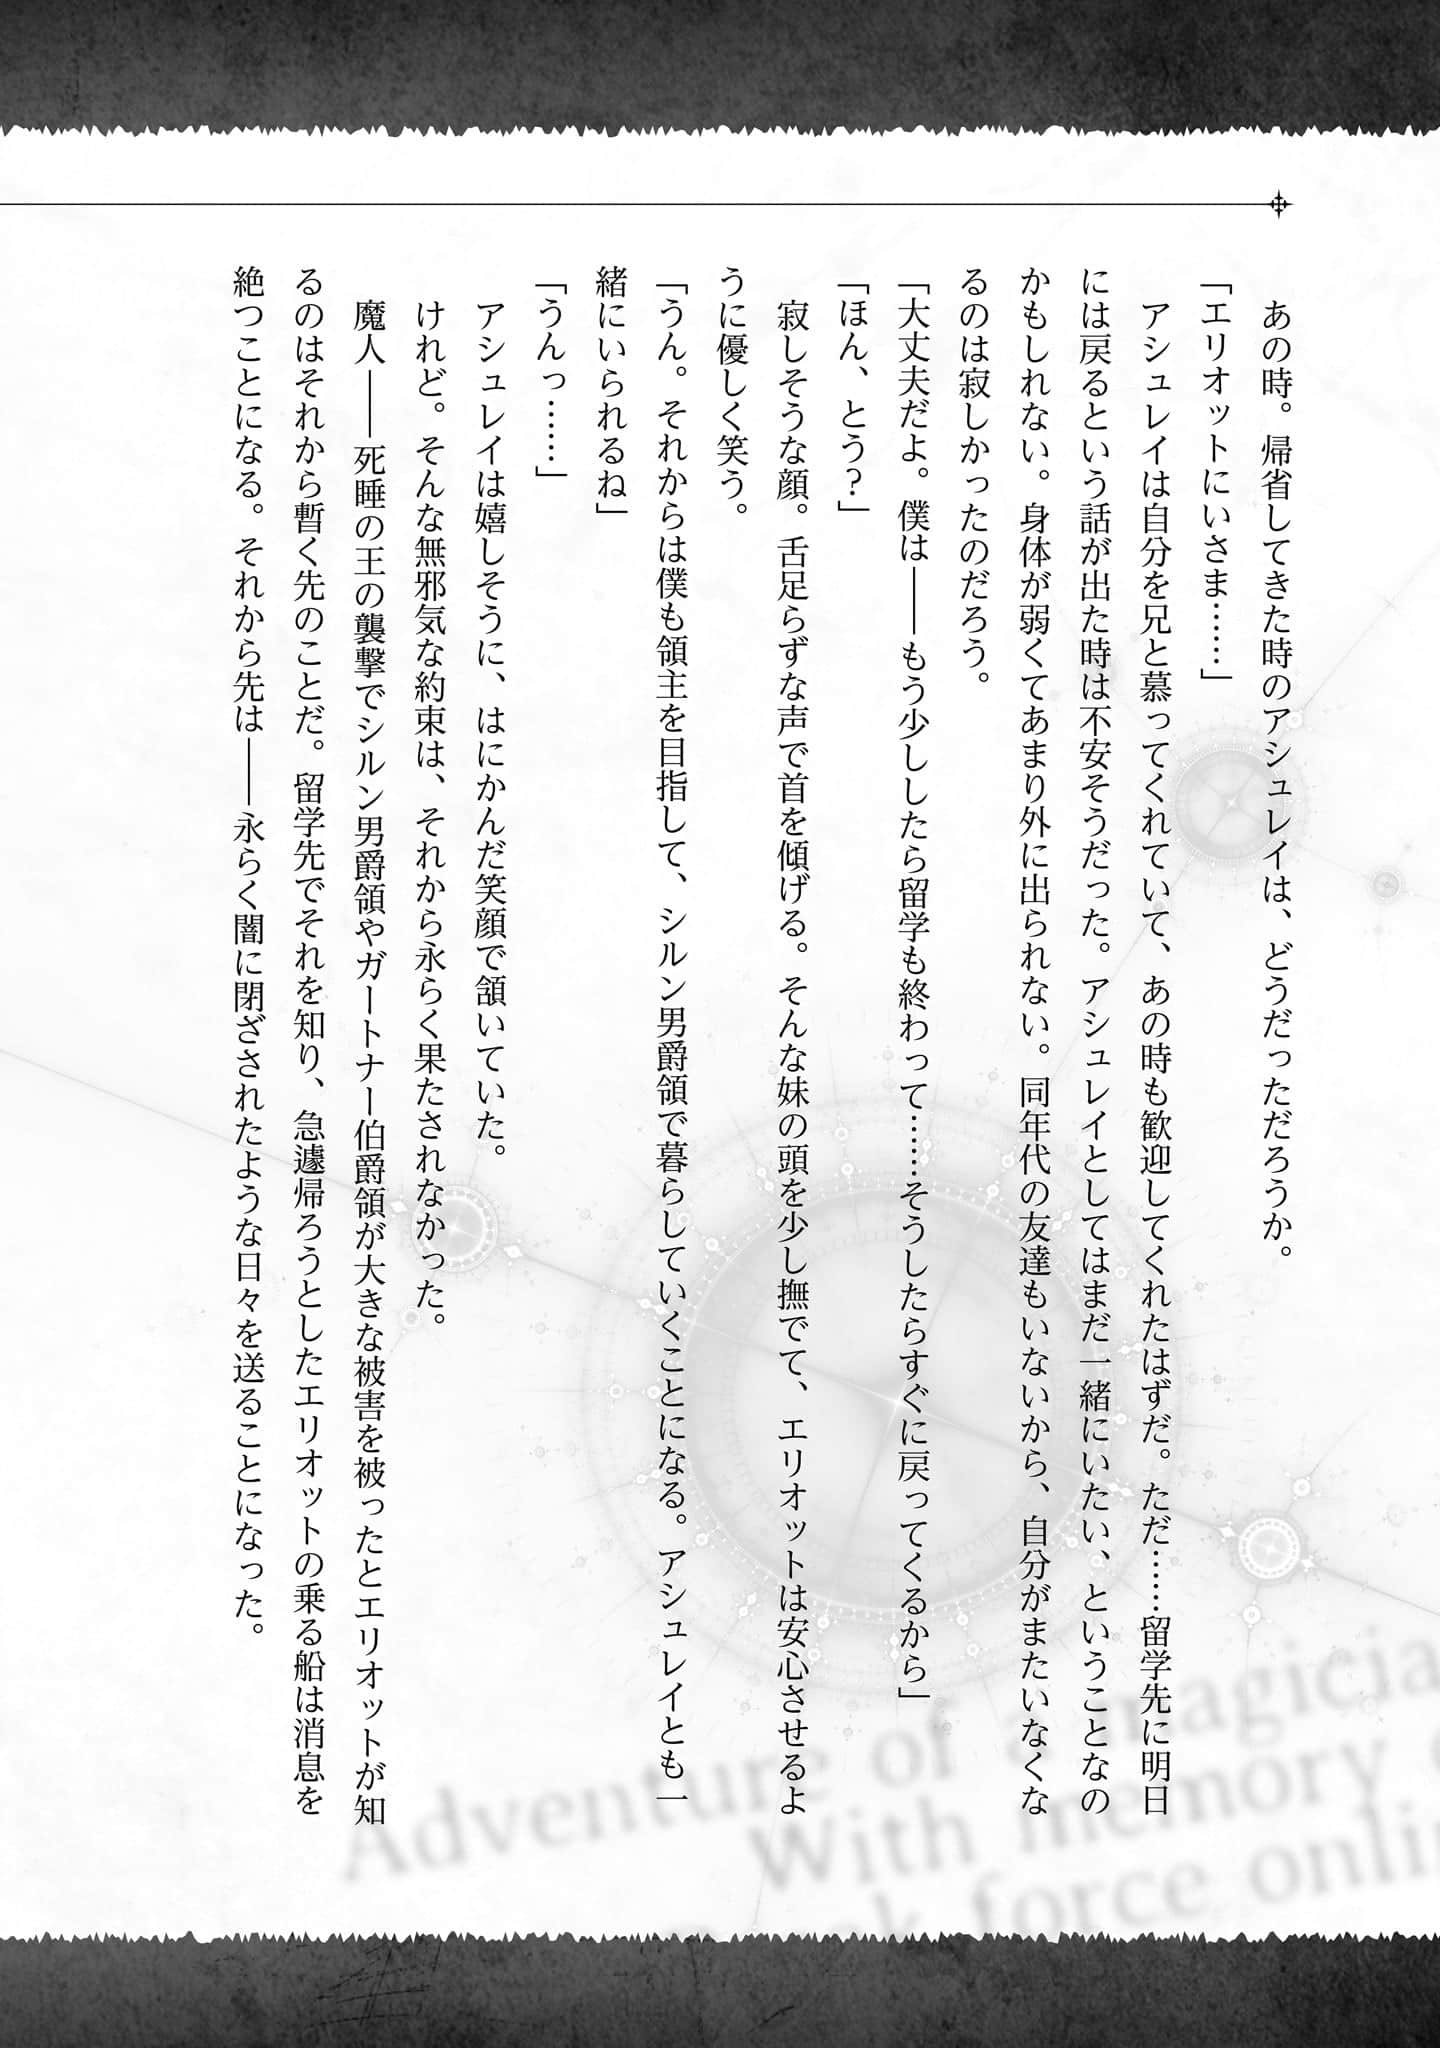 あの時。帰省してきた時のアシュレイは、どうだっただろうか。
「エリオットにいさま……」
アシュレイは自分を兄と慕ってくれていて、あの時も歓迎してくれたはずだ。ただ……留学先に明日
には戻るという話が出た時は不安そうだった。アシュレイとしてはまだ一緒にいたい、ということなの
かもしれない。身体が弱くてあまり外に出られない。同年代の友達もいないから、自分がまたいなくな
るのは寂しかったのだろう。
「大丈夫だよ。僕は――もう少ししたら留学も終わって……そうしたらすぐに戻ってくるから」
「ほん、とう？」
寂しそうな顔。舌足らずな声で首を傾げる。そんな妹の頭を少し撫でて、エリオットは安心させるよ
うに優しく笑う。
「うん。それからは僕も領主を目指して、シルン男爵領で暮らしていくことになる。アシュレイとも一
緒にいられるね」
「うんっ……」
アシュレイは嬉しそうに、はにかんだ笑顔で頷いていた。
けれど。そんな無邪気な約束は、それから永らく果たされなかった。
魔人――死睡の王の襲撃でシルン男爵領やガートナー伯爵領が大きな被害を被ったとエリオットが知
るのはそれから暫く先のことだ。留学先でそれを知り、急遽帰ろうとしたエリオットの乗る船は消息を
絶つことになる。それから先は――永らく闇に閉ざされたような日々を送ることになった。
Adventure of a magicia
With memory
force onli